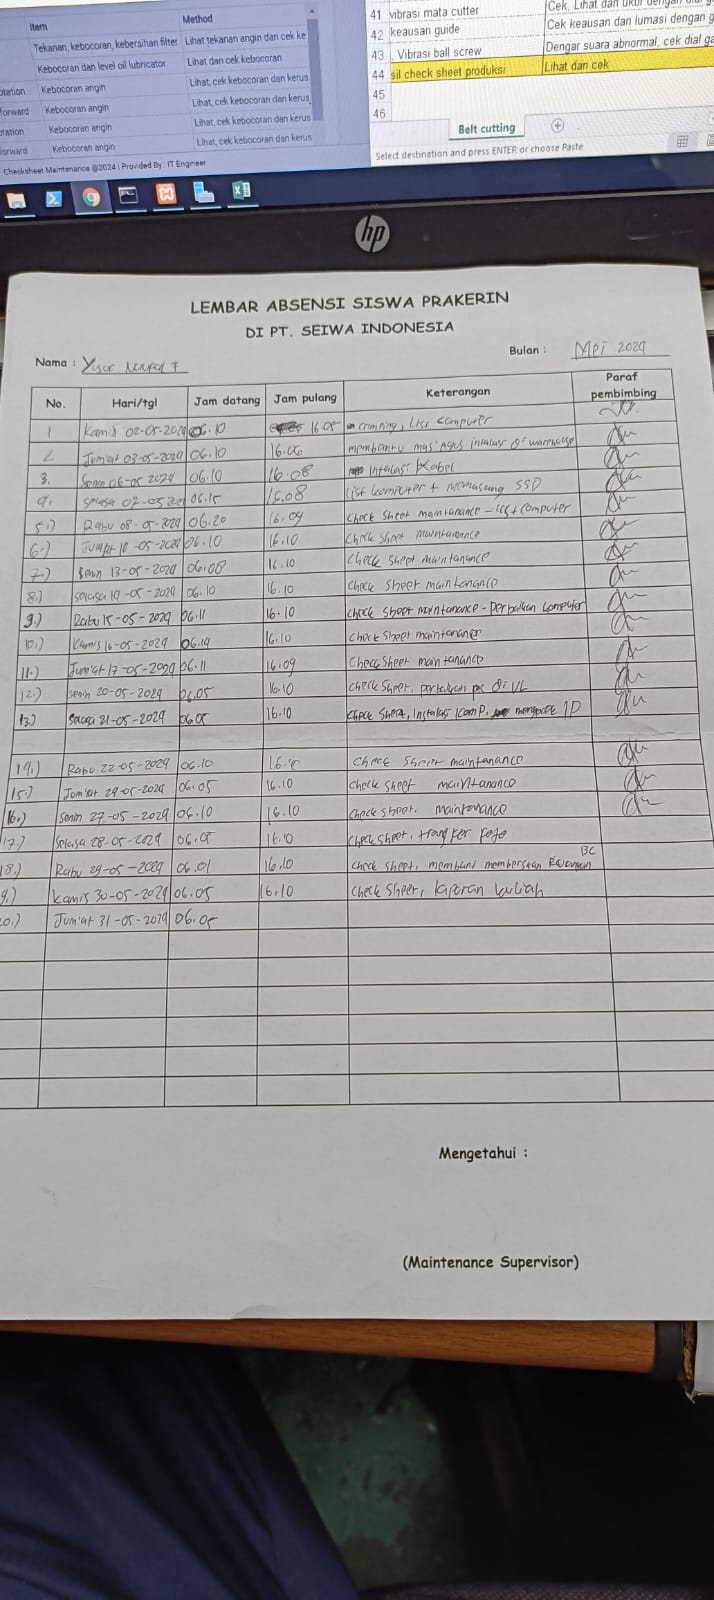 Item Method
Tekanan, kebocoran, kebersihan filter Lihat tekanan angin dan cek ke
Kebocoran dan level oil lubricator Lihat dan cek kebocoran
otation Kebocoran angin Lihat, cek kebocoran dan kerus
forward Kebocoran angin Lihat, cek kebocoran dan kerus
otation Kebocoran angin Lihat, cek kebocoran dan kerus
orward Kebocoran angin Lihat, cek kebocoran dan kerus
Checksheet Maintenance @2024 | Provided By : IT Engineer
41 vibrasi mata cutter Cek, Lihat dan ukur dengan
42 keausan guide Cek keausan dan lumasi dengan g
43 Vibrasi ball screw Dengar suara abnormal, cek dial ga
44 sil check sheet produksi Lihat dan cek
45
46
Belt cutting
Select destination and press ENTER or choose Paste
hp
LEMBAR ABSENSI SISWA PRAKERIN
DI PT. SEIWA INDONESIA
Nama : Yusuf Bulan : Mei 2024
No. Hari/tgl Jam datang Jam pulang Keterangan Paraf pembimbing
1 Kamis 02-05-2024 06.10 16.05 computer
2. Jum'at 03-05-2024 06.10 16.06 membantu mas Agus intalasi di warehouse
3. Senin 06-05 2024 06.10 16.08 Intalasi Kabel
4. Selasa 06.15 16.08 List komputer + memasang SSD
5.) Rabu 08-05-2024 06.20 16.09 Check Sheet maintanance - list computer
6.) Jumat 10-05-2024 06.10 16.10 Check sheet
7.) Senin 13-05-2024 06.08 16.10 Check sheet maintanance
8.) Selasa 14-05-2024 06.10 16.10 Check sheet maintanance
9.) Rabu 15-05-2024 06.11 16.10 check sheet maintonance - perbaikan computer
10.) Kamis 16-05-2024 06.14 16.10 check sheet maintenance
11.) Jum'at 17-05-2024 06.11 16.09 Check sheet maintanance
12.) Senin 20-05-2024 06.05 16.10 check sheet, di
13.) Selasa 21-05-2024 06.05 16.10 check sheet, Instalasi komp, ID
14.) Rabu 22-05-2024 06.10 16.10 check sheet maintanance
15.) Jum'at 24-05-2024 06.05 16.10 check sheet maintanance
16.) Senin 27-05-2024 06.10 16.10 check sheet. maintanance
17.) Selasa 28-05-2024 06.05 16.10 check sheet, transfer foto
18.) Rabu 29-05-2024 06.01 16.10 check sheet, membantu membersikan Ruangan BC
9.) Kamis 30-05-2024 06.05 16.10 check sheet, laporan kuliah
20.) Jum'at 31-05-2024 06.05
Mengetahui :
(Maintenance Supervisor)